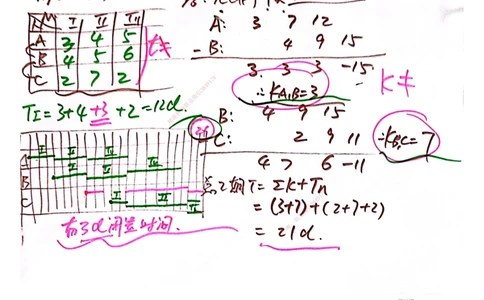 I II III
A 3 4 5
B 4 5 6
C 2 7 2
t≠
A: 3 7 12
- B: 4 9 15
3 3 3 -15
∴KA,B=3
K≠
B: 4 9 15
C: 2 9 11
∴KB,C=7
4 7 6 -11
TI=3+4+3+2=12d.
I II III
I II III
I II III
B
C
T=ΣK+Tn
=(3+7)+(2+7+2)
=21d.
有3d闲置时间.